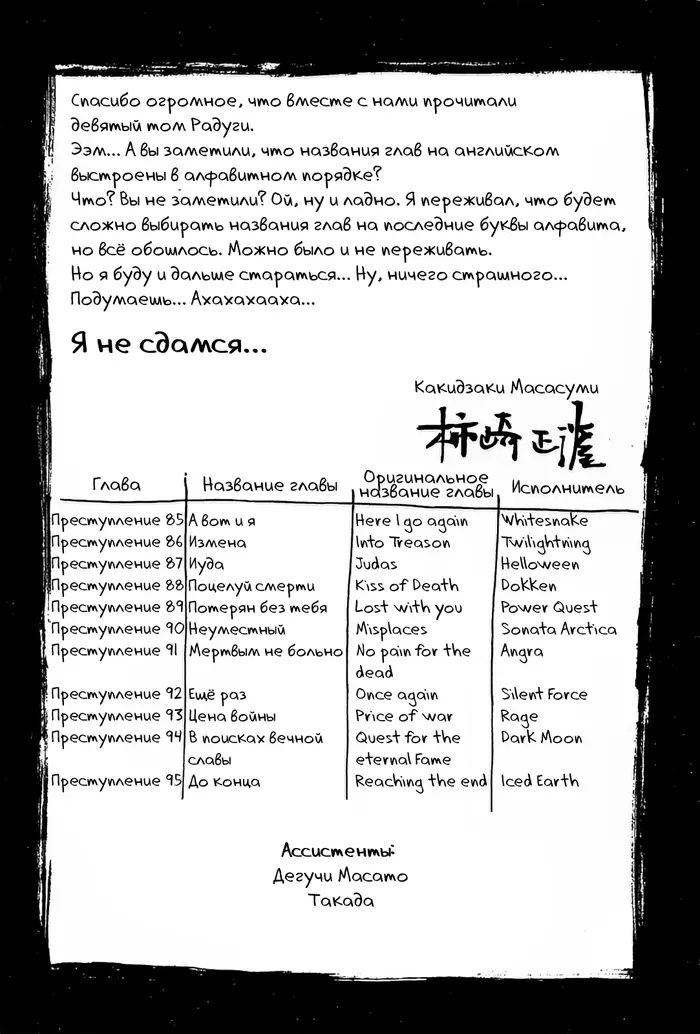 Спасибо огромное, что вместе с нами прочитали
девятый том Радуги.
Ээм... А вы заметили, что названия глав на английском
выстроены в алфавитном порядке?
Что? Вы не заметили? Ой, ну и ладно. Я переживал, что будет
сложно выбирать названия глав на последние буквы алфавита,
но всё обошлось. Можно было и не переживать.
Но я буду и дальше стараться... Ну, ничего страшного...
Подумаешь... Ахахахааха...
Я не сдамся...
Какидзаки Масасуми
柿崎正澄
Глава Название главы Оригинальное название главы Исполнитель
Преступление 85 А вот и я Here I go again Whitesnake
Преступление 86 Измена Into Treason Twilightning
Преступление 87 Иуда Judas Helloween
Преступление 88 Поцелуй смерти Kiss of Death Dokken
Преступление 89 Потерян без тебя Lost with you Power Quest
Преступление 90 Неуместный Misplaces Sonata Arctica
Преступление 91 Мертвым не больно No pain for the Angra
dead
Преступление 92 Ещё раз Once again Silent Force
Преступление 93 Цена войны Price of war Rage
Преступление 94 В поисках вечной Quest for the Dark Moon
славы eternal Fame
Преступление 95 До конца Reaching the end Iced Earth
Ассистенты:
Дегучи Масато
Такада